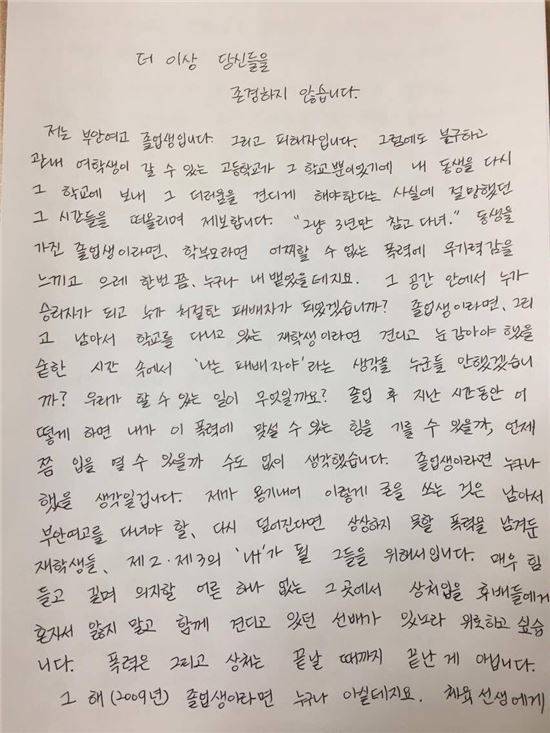 더 이상 당신들을
존경하지 않습니다.
저는 부안여고 졸업생입니다. 그리고 피해자입니다. 그럼에도 불구하고
관내 여학생이 갈 수 있는 고등학교가 그 학교뿐이었기에 내 동생을 다시
그 학교에 보내 그 더러운을 견디게 해야한다는 사실에 절망했던
그 시간들을 떠올리며 제보합니다. "그냥 3년만 참고 다녀." 동생을
가진 졸업생이라면, 학부모라면 어찌할 수 없는 폭력에 무기력감을
느끼고 으레 한번 쯤, 누구나 내 뱉었을테지요. 그 공간 안에서 누가
승리자가 되고 누가 처절한 패배자가 되었겠습니까? 졸업생이라면, 그리
고 남아서 학교를 다니고 있는 재학생이라면 견디고 눈 감아야 했을
숱한 시간 속에서 '나는 패배자야'라는 생각을 누군들 안했겠습니
까? 우리가 할 수 있는 일이 무엇일까요? 졸업 후 지난 시간동안 어
떻게 하면 내가 이 폭력에 맞설 수 있는 힘을 기를 수 있을까, 언제
쯤 입을 열 수 있을까 수도 없이 생각했습니다. 졸업생이라면 누구나
했을 생각일겁니다. 제가 용기내어 이렇게 글을 쓰는 것은 남아서
부안여고를 다녀야 할, 다시 덮어진다면 상상하지 못할 폭력을 남겨둔
재학생들, 제2·제3의 '나'가 될 그들을 위해서입니다. 매우 힘
들고 길며 의지할 어른 하나 없는 그 곳에서 상처입을 후배들에게
혼자서 앓지 말고 함께 견디고 있던 선배가 있노라 위로하고 싶습
니다. 폭력은 그리고 상처는 끝날 때까지 끝난 게 아닙니다.
그 해(2009년) 졸업생이라면 누구나 아실테지요. 체육선생에게